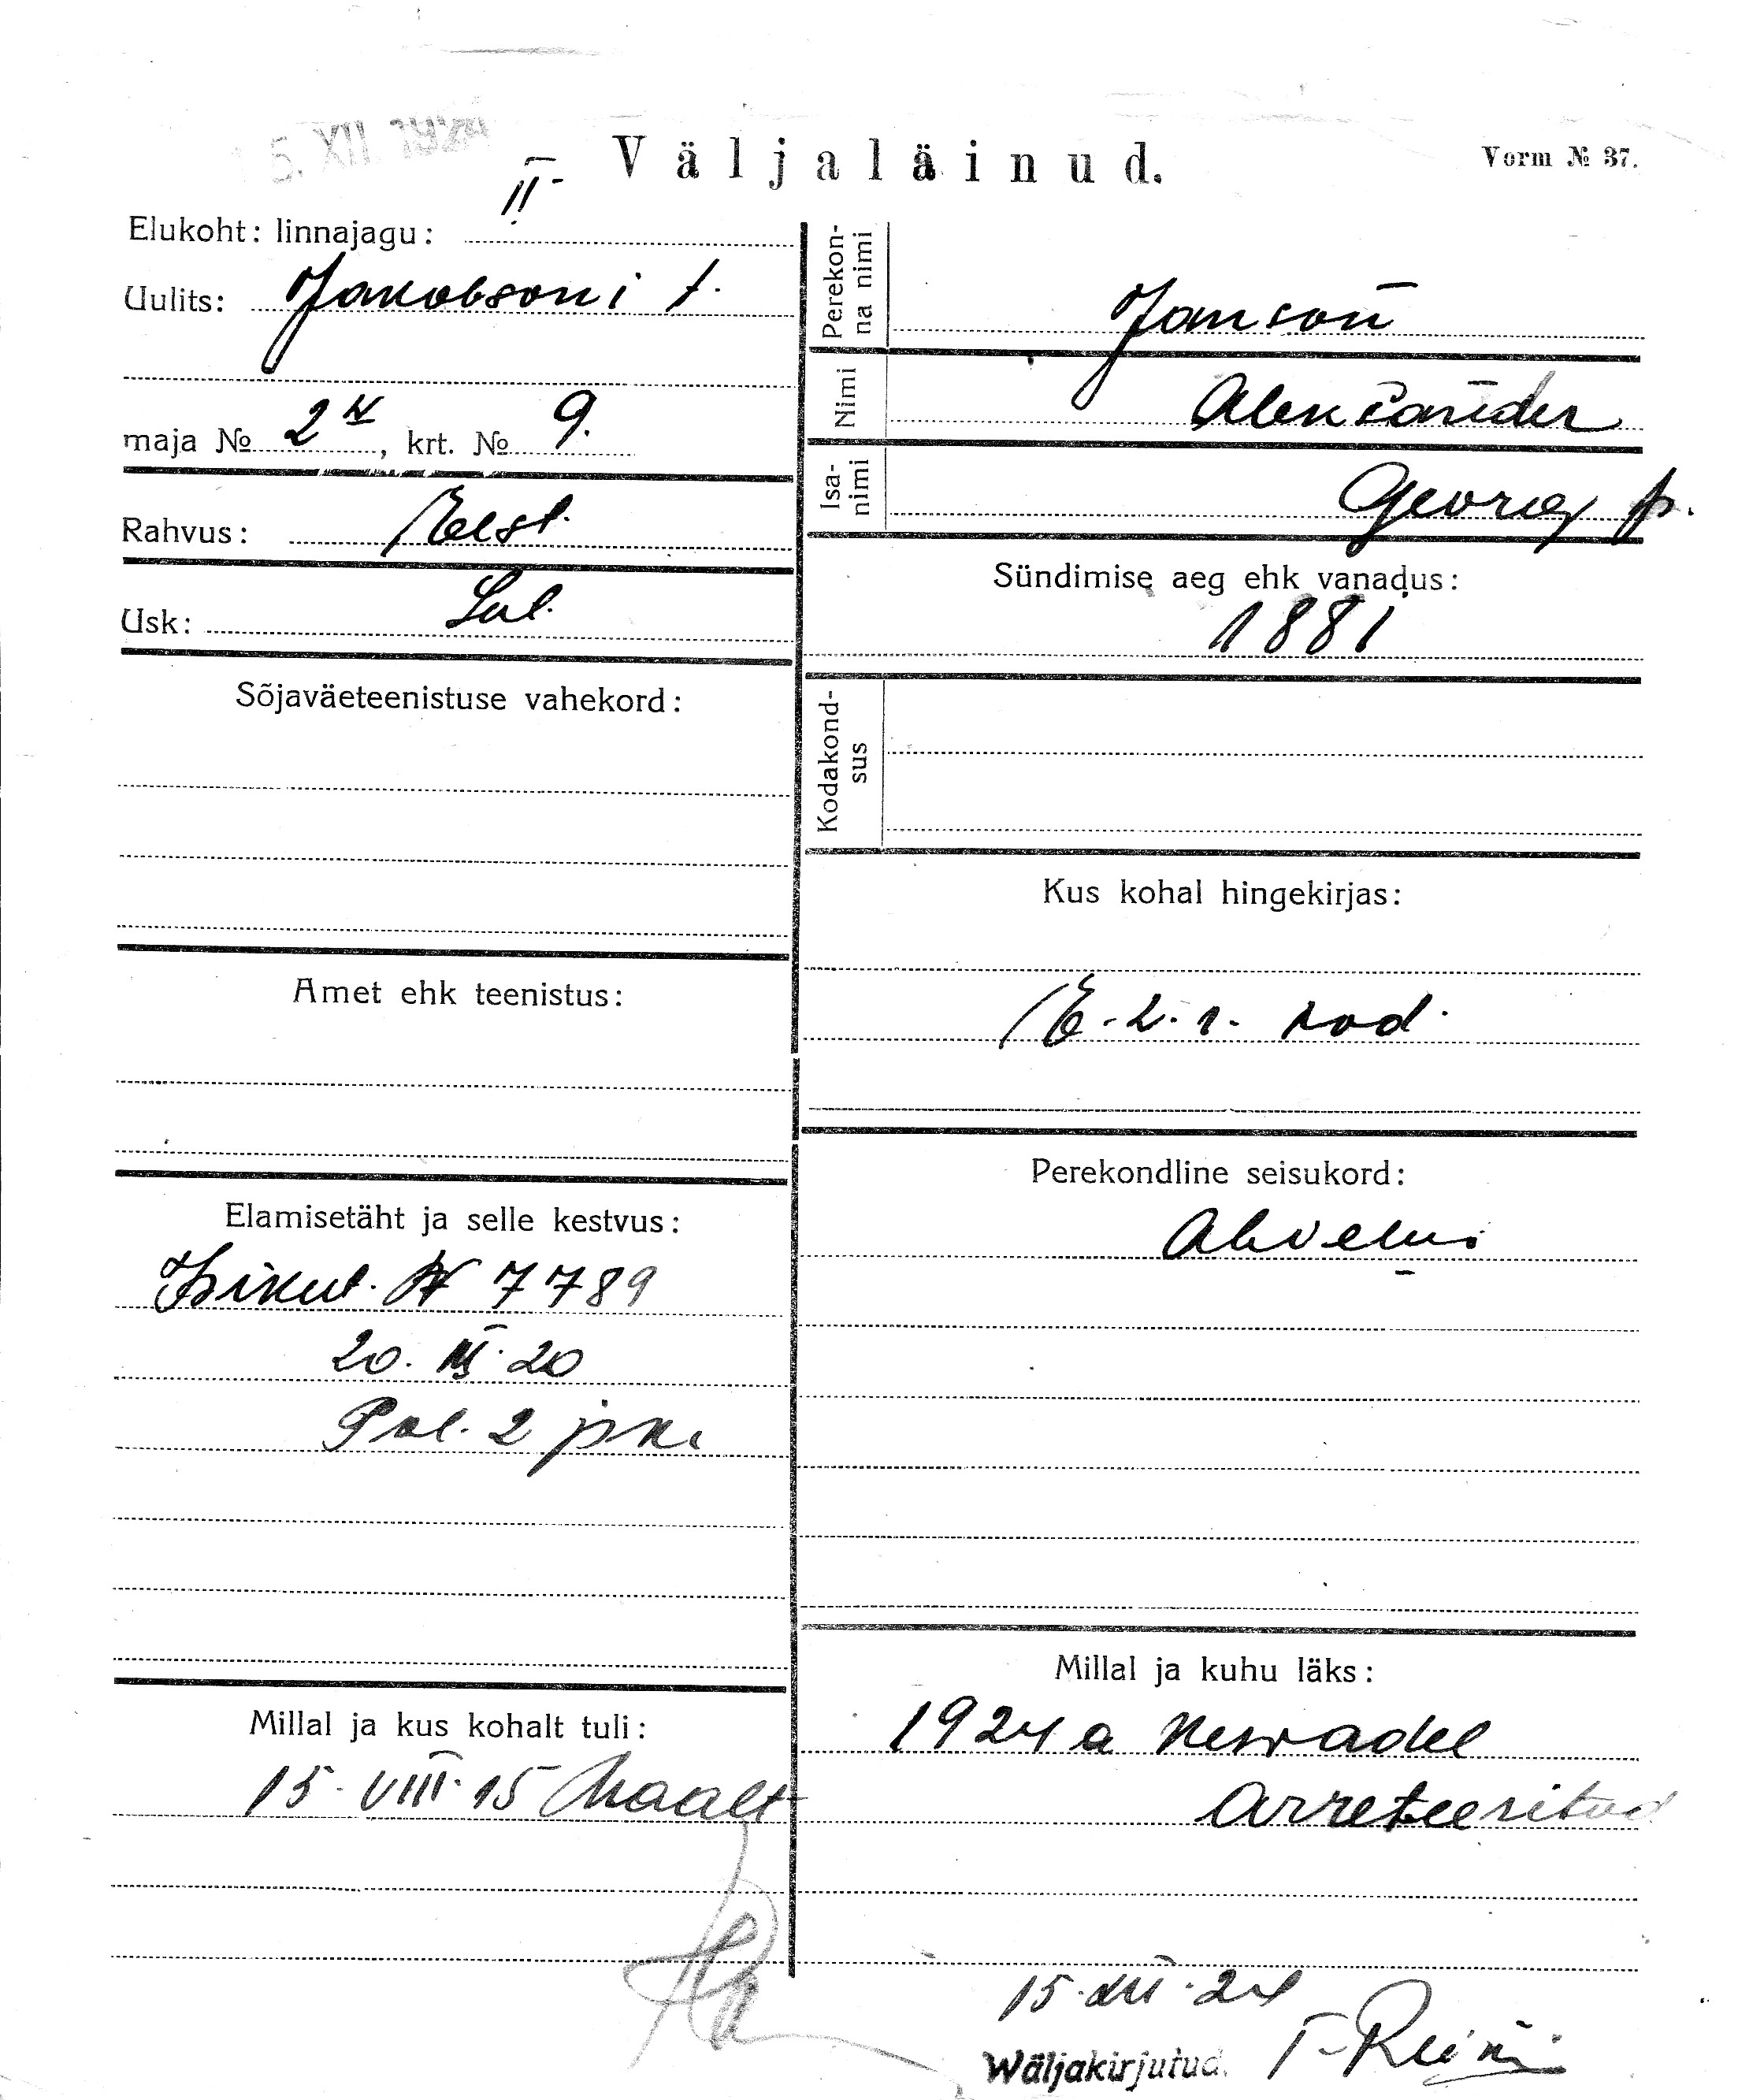 5. XII 1924
Väljaläinud.
Vorm № 37.
Elukoht: linnajagu: II
Uulits: Jakobsoni t.
maja № 24, krt. № 9.
Rahvus: Eest.
Usk: Lut.
Sõjaväeteenistuse vahekord:
Amet ehk teenistus:
Elamisetäht ja selle kestvus:
Isikut. № 7789
20. 20
Pol. 2 jsk.
Millal ja kus kohalt tuli:
15. VIII. 15 Maalt
Perekonna nimi
Janson
Nimi
Aleksander
Isanimi
Georg p.
Sündimise aeg ehk vanadus:
1881
Kodakondsus
Kus kohal hingekirjas:
E. kod.
Perekondline seisukord:
Abielus
Millal ja kuhu läks:
1924 a kewadel
Arreteeritud
15. XII. 24
Wäljakirjutud.